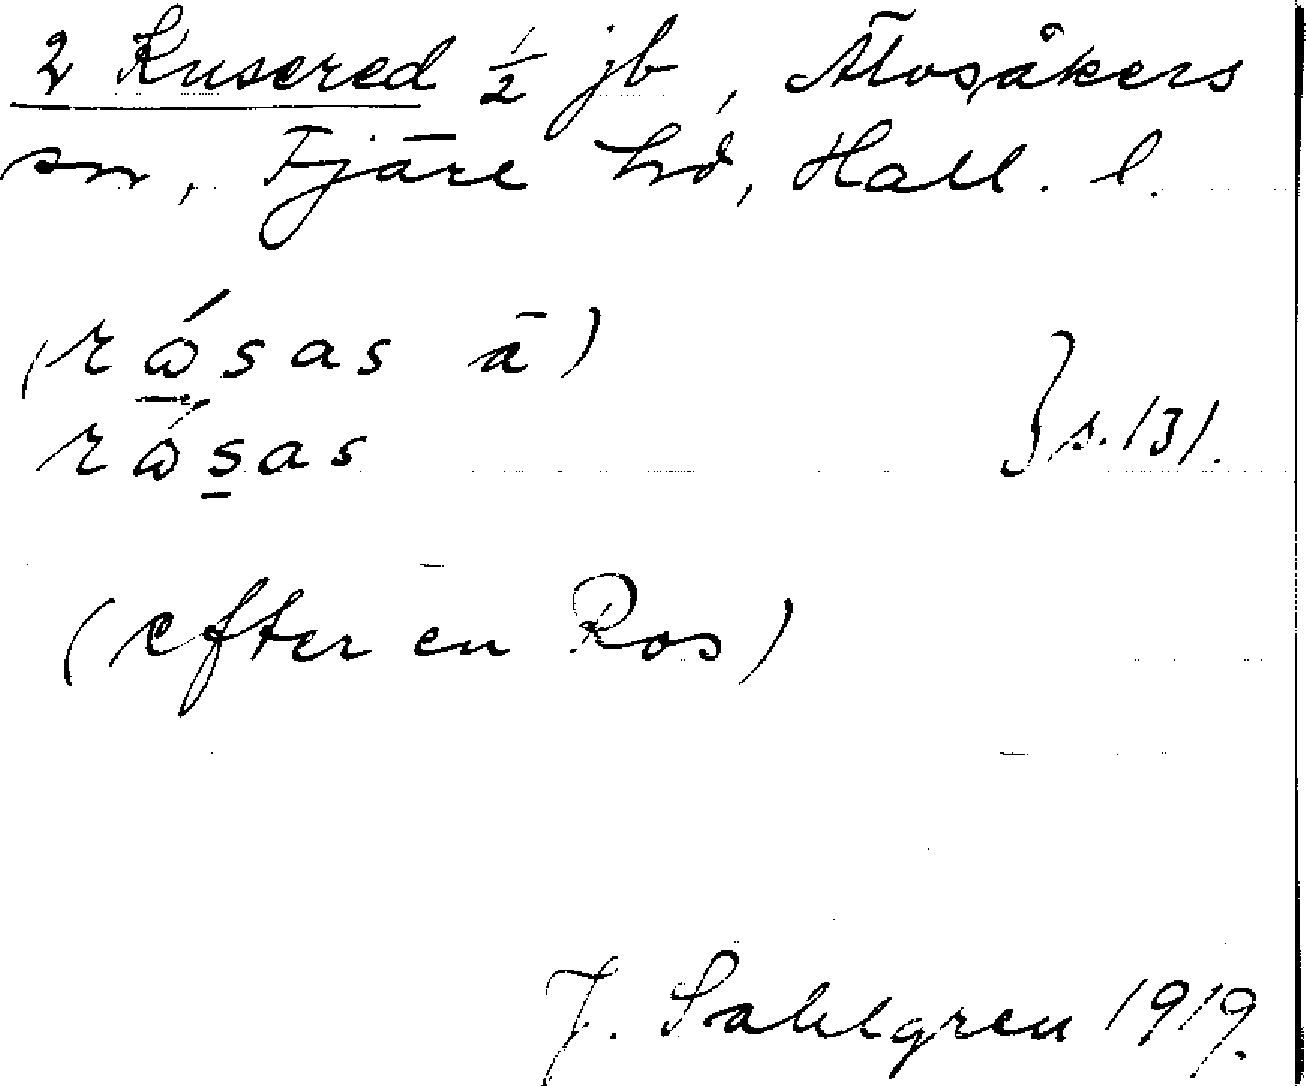 2 Kusered 1/2 jb, Älvsåkers
sn, Fjäre hd, Hall. l.
(rǻsas ā)
rǻsas } s. 131.
(efter en Ros)
J. Sahlgren 1919.